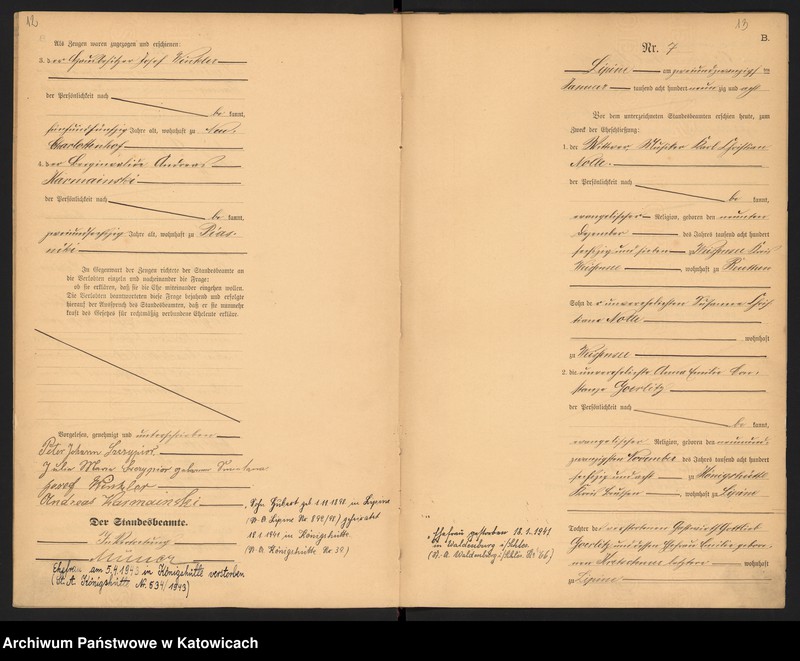 12
Als Zeugen waren zugezogen und erschienen:
3. der Hausbesitzer Josef Winkler
der Persönlichkeit nach
be kannt,
fünfundfünfzig Jahre alt, wohnhaft zu Neu-
Charlottenhof
4. der Berginvalide Andreas
Karmainski
der Persönlichkeit nach
be kannt,
zweiundsechzig Jahre alt, wohnhaft zu Pias-
niki
In Gegenwart der Zeugen richtete der Standesbeamte an
die Verlobten einzeln und nacheinander die Frage:
ob sie erklären, daß sie die Ehe miteinander eingehen wollen.
Die Verlobten beantworteten diese Frage bejahend und erfolgte
hierauf der Ausspruch des Standesbeamten, daß er sie nunmehr
kraft des Gesetzes für rechtmäßig verbundene Eheleute erkläre.
Vorgelesen, genehmigt und unterschrieben
Peter Johann
Julie Marie geborene
Josef Winkler
Andreas Karmainski
Der Standesbeamte.
In Vertretung
Ehefrau am 5.4.1943 in Königshütte verstorben
(St. A Königshütte Nr. 534/1943)
Sohn Hubert geb. 1.11.1898 in Lipine
geheiratet
18.1.1941 in Königshütte
Königshütte Nr. 39)
13
B.
Nr. 7
Lipine am zweiundzwanzigsten
Januar tausend acht hundert neunzig und acht
Vor dem unterzeichneten Standesbeamten erschien heute, zum
Zweck der Eheschließung:
1. der Witwer, Musiker Karl Christian
Nolle
der Persönlichkeit nach
be kannt,
evangelischer Religion, geboren den neunten
Dezember des Jahres tausend acht hundert
sechzig und sieben zu Weißensee Kreis
Weißensee, wohnhaft zu
Sohn der unverehelichten Susanne Chris-
tiane Nolle
wohnhaft
zu Weißensee
2. die unverehelichte Anna Emilie Con-
stanze Goerlitz
der Persönlichkeit nach
be kannt,
evangelischer Religion, geboren den neunund-
zwanzigsten November des Jahres tausend acht hundert
sechzig und acht zu Königshütte
Kreis Beuthen, wohnhaft zu Lipine
Tochter des verstorbenen Gastwirts Gottlieb
Goerlitz und dessen Ehefrau Emilie gebore-
nen Kretschmer letztere wohnhaft
zu Lipine
Ehefrau gestorben 18.1.1941
in Waldenburg i/Schles.
(St. A. Waldenburg i/Schles. Nr. 66)
Archiwum Państwowe w Katowicach